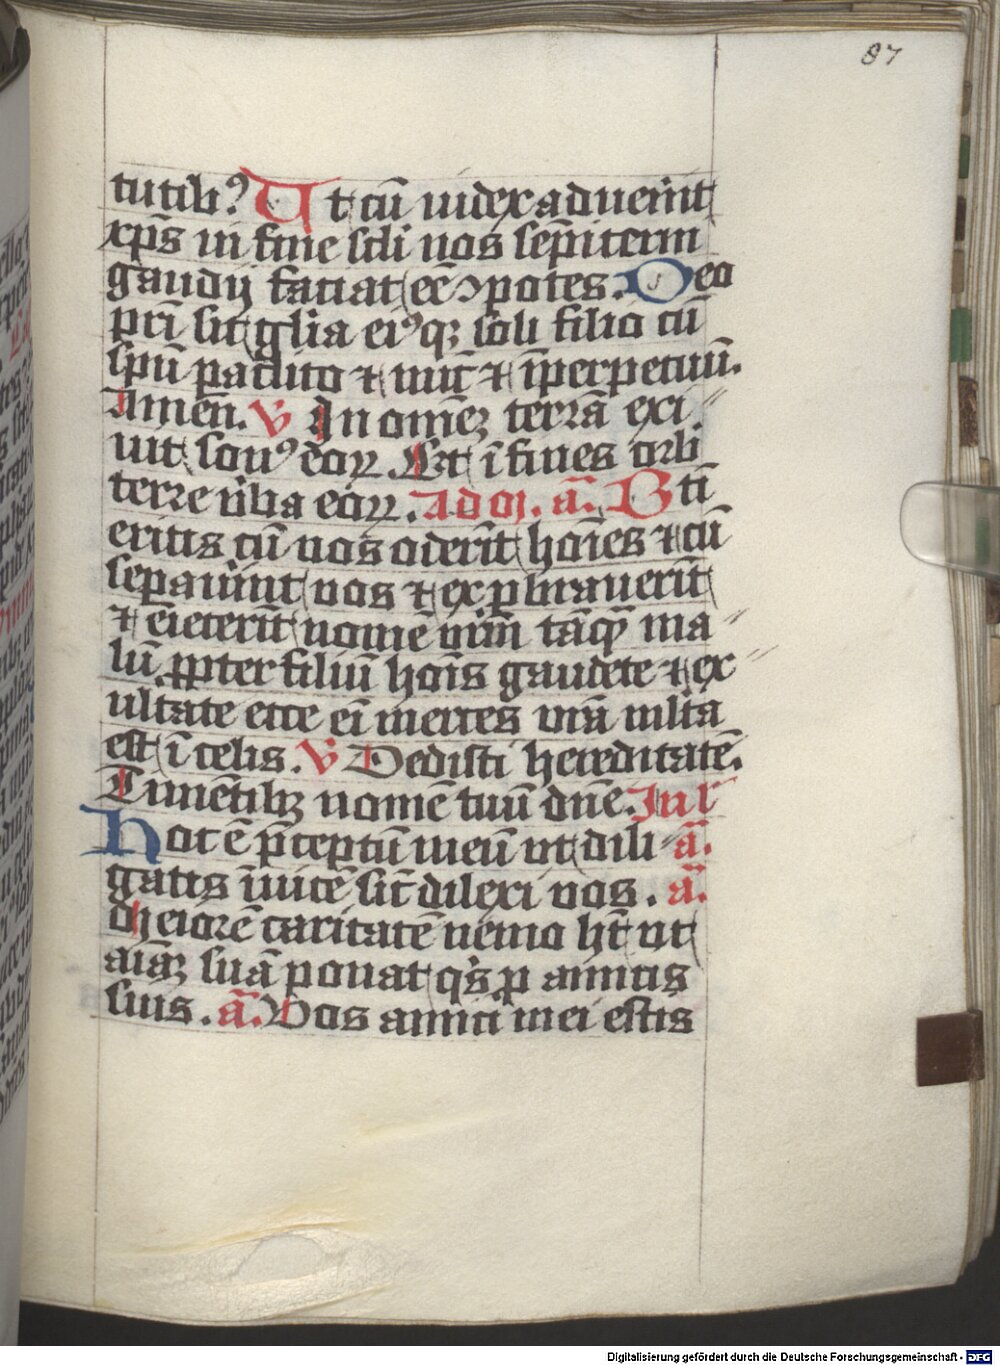 87
tutib⁹ Ut cū iudex aduenit
xp̄s in fine scli nos sēpiterni
gaudij faciat eē ↄpotes. Deo
pri sit gl̄ia ei⁹qꝫ soli filio cū
spū paclito ⁊ nūc ⁊ īperpetuū.
Amen. V In omēꝫ terrā exi
uit son⁹ eoꝝ. Et ī fines orbi
terre v̄ba eoꝝ. Ad oꝝ. ā. Bti
eritis cū uos oderīt hoīes ⁊ cū
sepauint uos ⁊ exꝑbrauerīt
⁊ eiecerīt nomē vrm̄ tāqꝫ ma
lū ꝓpter filiū hoīs gaudete ⁊ ex
ultate ecce eī merces vr̄a mlta
est ī celis. V Dedisti hereditatē.
Timētibꝫ nomē tuū dn̄e. In l'
Hoc ē p̄ceptū meū ut dili ā.
gatis īuicē sic̄ dilexi uos. ā.
Maiorē caritatē nemo ht̄ ut
aīaꝫ suā ponat q's ꝓ amicis
suis. ā. Vos amici mei estis
Digitalisierung gefördert durch die Deutsche Forschungsgemeinschaft - DFG